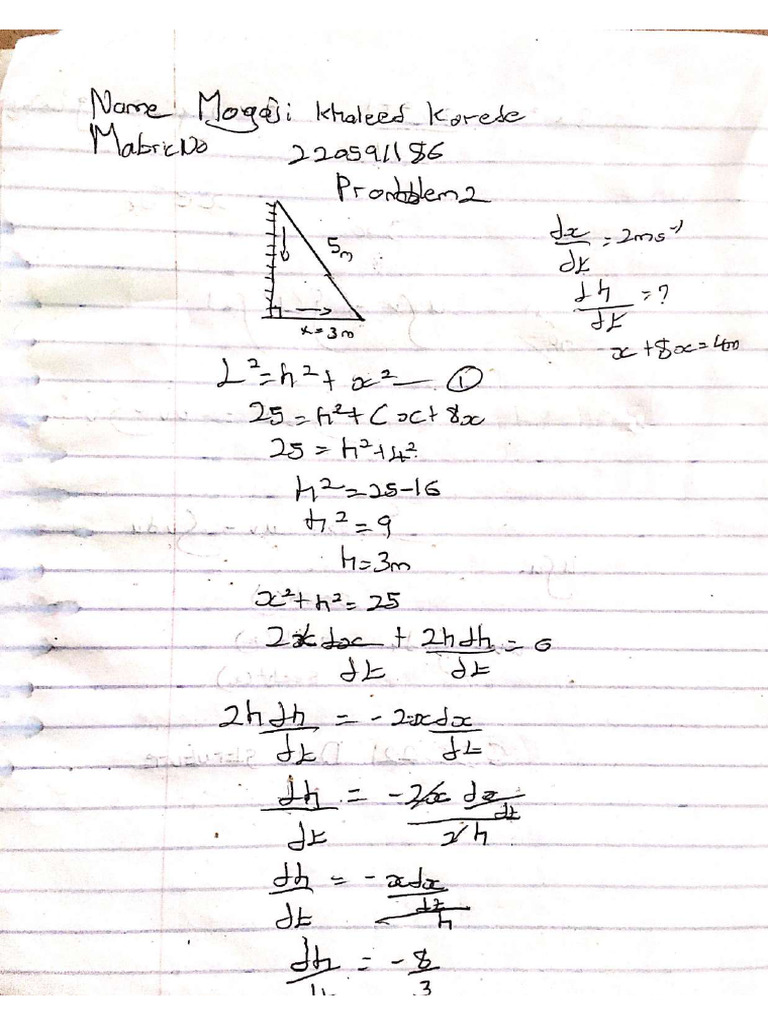 Name Mogaji Khaleed Korede
MatricNo 220591186
Problem 2
5m
x = 3m
dx/dt = 2ms⁻¹
dh/dt = ?
x + δx = 4m
L² = h² + x² — ①
25 = h² + (x + δx
25 = h² + 4²
h² = 25 - 16
h² = 9
h = 3m
x² + h² = 25
2x dx/dt + 2h dh/dt = 0
2h dh/dt = - 2x dx/dt
dh/dt = -2x dx/dt / 2h
dh/dt = - x dx/dt / h
dh/dt = - 8/3